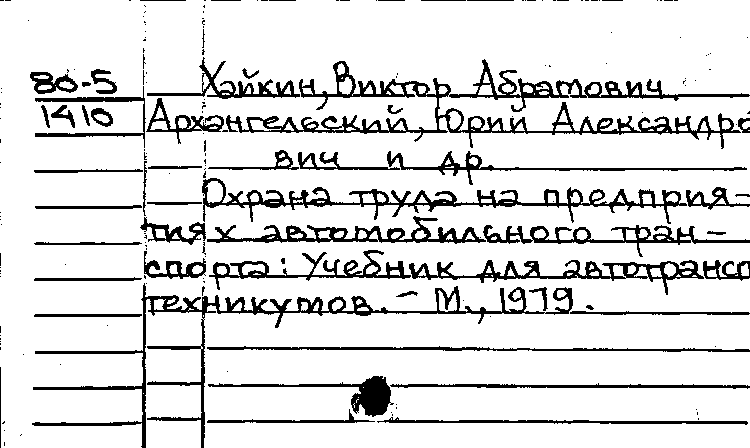 80-5
1410
Хайкин, Виктор Абрамович.
Архангельский, Юрий Александро
вич и др.
Охрана труда на предприя-
тиях автомобильного тран-
спорта: Учебник для автотрансп
техникумов. - М., 1979.